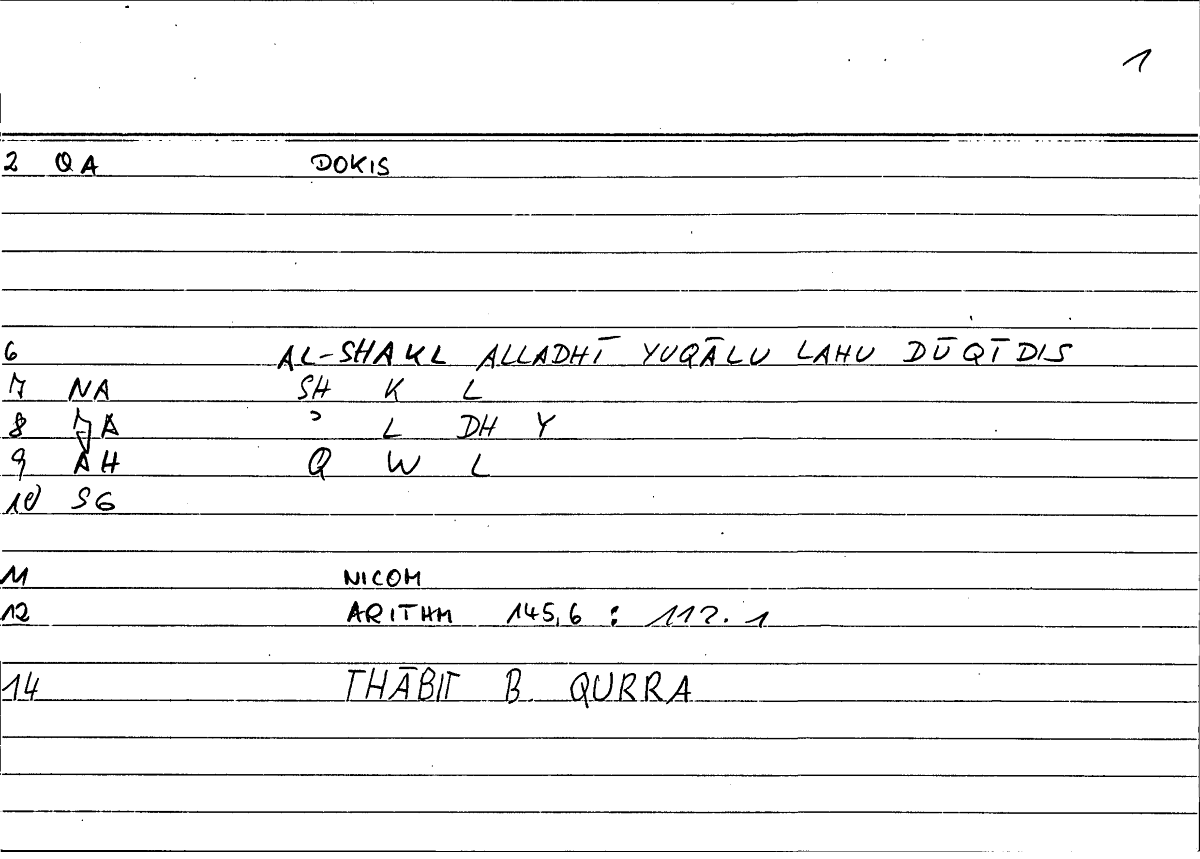 1
2 QA DOKIS
6 AL-SHAKL ALLADHĪ YUQĀLU LAHU DŪQĪDIS
7 NA SH K L
8 ٦A ʾ L DH Y
9 AH Q W L
10 SG
11 NICOM
12 ARITHM 145,6 : 112. 1
14 THĀBIT B. QURRA